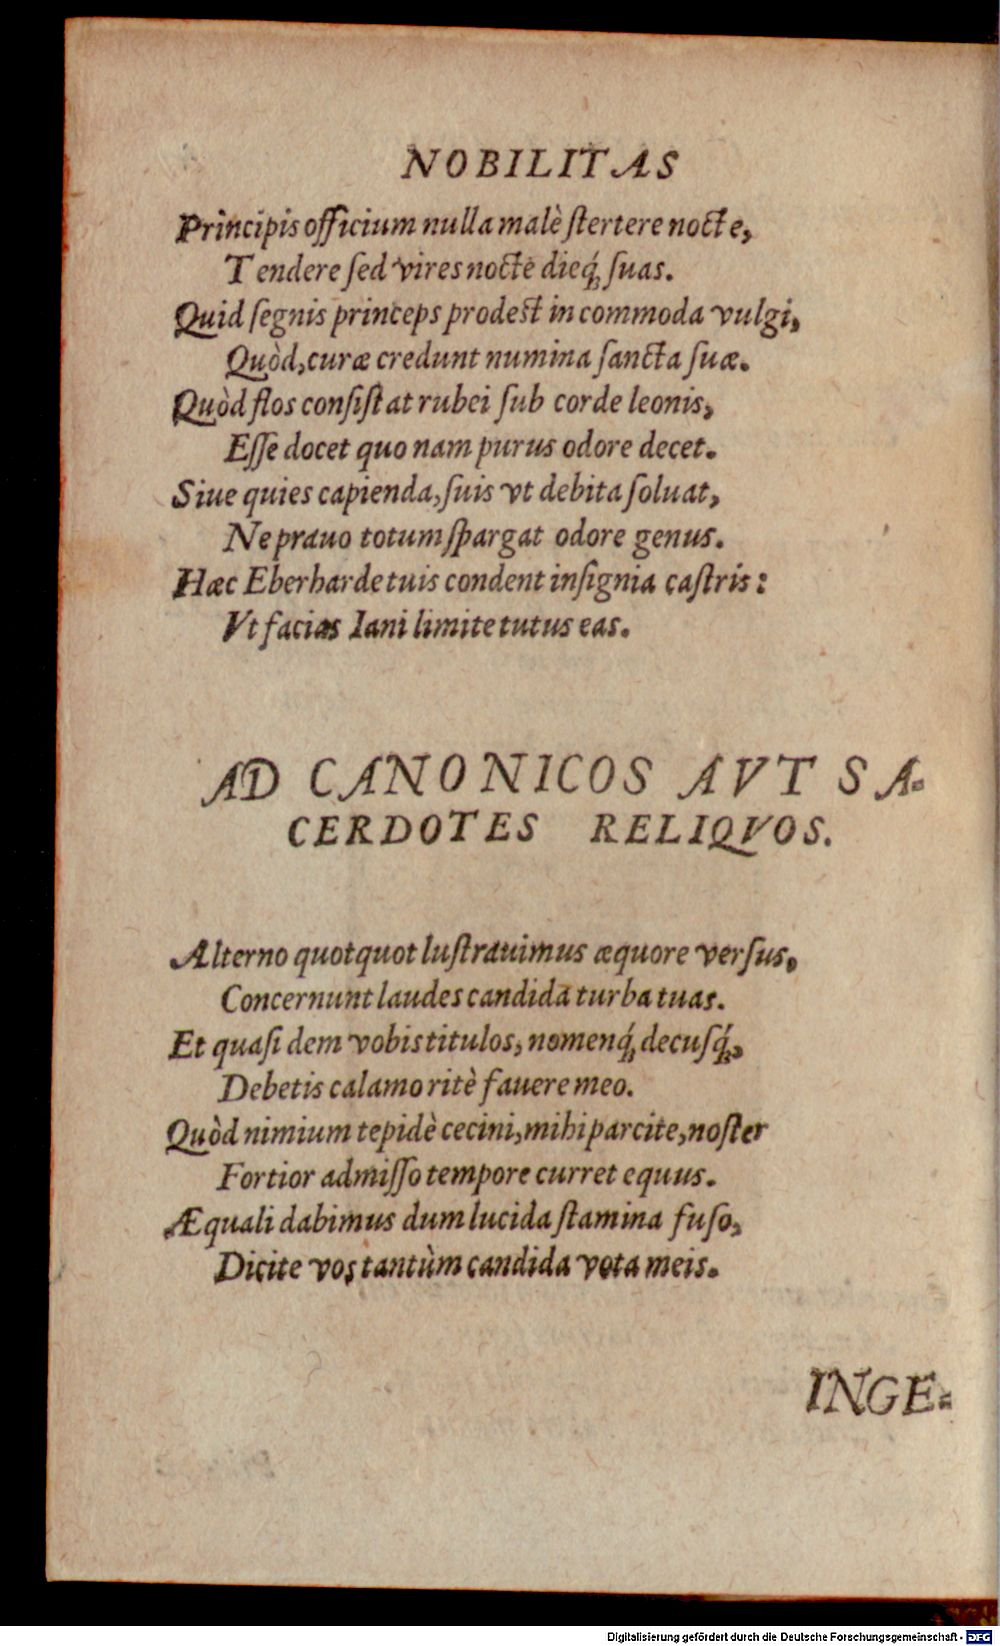 NOBILITAS
Principis officium nulla malè ſtertere nocte,
Tendere ſed vires nocte dieq́; ſuas.
Quid ſegnis princeps prodest in commoda vulgi,
Quòd, curæ credunt numina ſancta ſuæ.
Quòd flos conſiſtat rubei ſub corde leonis,
Eſſe docet quo nam purus odore decet.
Siue quies capienda, ſuis vt debita ſoluat,
Ne prauo totum ſpargat odore genus.
Hæc Eberharde tuis condent inſignia caſtris:
Vt facias Iani limite tutus eas.
AD CANONICOS AVT SA-
CERDOTES RELIQVOS.
Alterno quotquot luſtrauimus æquore verſus,
Concernunt laudes candida turba tuas.
Et quaſi dem vobis titulos, nomenq́; decuſq́;,
Debetis calamo ritè fauere meo.
Quòd nimium tepidè cecini, mihi parcite, noſter
Fortior admiſſo tempore curret equus.
Æquali dabimus dum lucida ſtamina fuſo,
Dicite vos tantùm candida vota meis.
INGE-
Digitalisierung gefördert durch die Deutsche Forschungsgemeinschaft - DFG